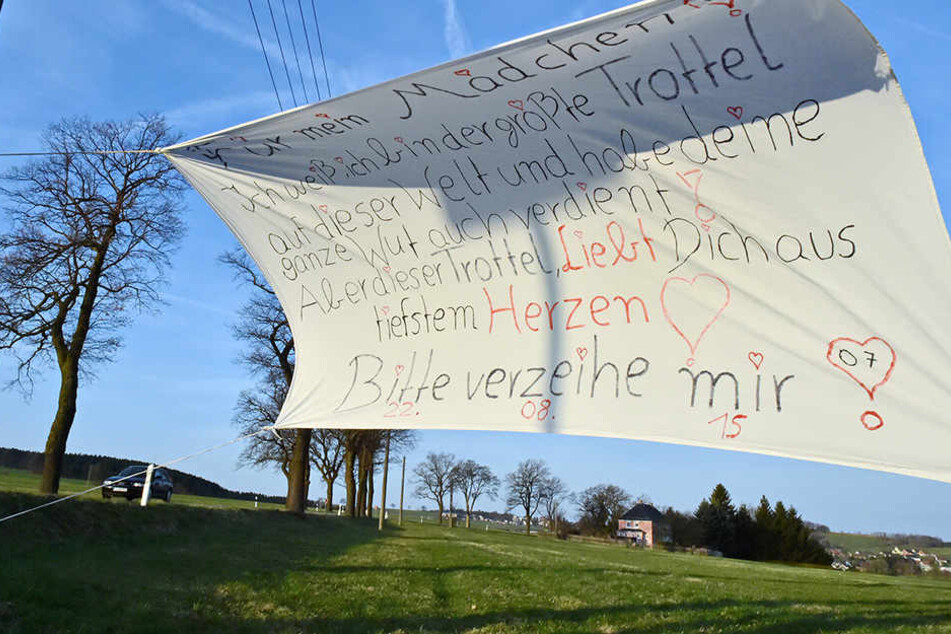 Für mein Mädchen!
Ich weiß, ich bin der größte Trottel
auf dieser Welt und habe deine
ganze Wut auch verdient!
Aber dieser Trottel, Liebt Dich aus
tiefstem Herzen
Bitte verzeihe mir 07
22. 08. 15